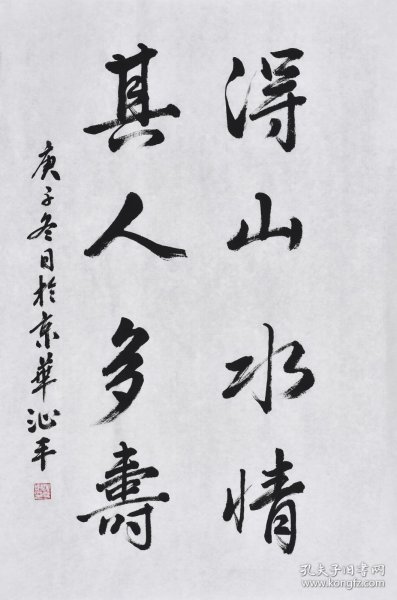 得山水情
其人多壽
庚子冬日於京華沁平
孔夫子旧书网
www.kongfz.com